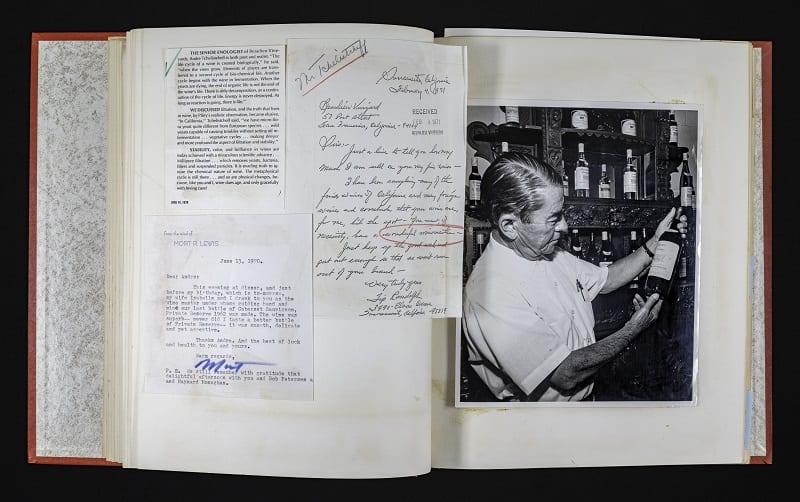 THE SENIOR ENOLOGIST of Beaulieu Vine-
yards, Andre Tchelistcheff is both poet and realist. "The
life cycle of a wine is created biologically," he said,
"when the vines grow. Elements of grapes are trans-
ferred to a second cycle of bio-chemical life. Another
cycle begins with the wine in fermentation. When the
yeasts are dying, the end of organic life is not the end of
the wine's life. There is only decomposition, as a contin-
uation of the cycle of life. Energy is never destroyed. As
long as reaction is going, there is life."
WE DISCUSSED filtration, and the truth that lives
in wine; by Play's realistic observation, became elusive.
"In California," Tchelistcheff said, "we have micro-flo-
ra yeast quite different from European yeasts
yeasts capable of causing troubles without setting off re-
fermentation vegetative cycles making deeper
and more profound the aspect of filtration and stability."
STABILITY, color, and brilliance in wines are
today achieved with a miraculous scientific advance
millipore filtration which removes yeasts, bacteria,
fibers and suspended particles. It is exacting
the chemical nature of wine. The metaphysical
cycle is still there and so are physical changes, be-
cause, like you and I, wine does age, and only gracefully
with loving care!
From the mind of
MORT R. LEWIS
June 13, 1970.
Dear Andre:
This evening at dinner, and just
before my birthday, which is to-morrow,
my wife Isabelle and I drank to you as the
wine master under whose guiding hand and
mind our last bottle of Cabernet Sauvignon,
Private Reserve 1962 was made. The wine was
superb-- never did I taste a better bottle
of Private Reserve-- it was smooth, delicate
and yet assertive.
Thanks Andre. And the best of luck
and health to you and yours.
Warm regards,
Mort
P. S. We still remember with gratitude that
delightful afternoon with you and Bob Petersen
and Maynard Monaghan.
Mr Tchelistcheff
Sacramento, California
February 4, 1971
Beaulieu Vineyard
57 Post Street
San Francisco, California - 94104
RECEIVED
FEB 8 1971
BEAULIEU VINEYARD
Sirs:-
Just a line to tell you how very
much I am sold on your very fine wine -
I have been sampling many of the
fine wines of California and very foreign
wine and conclude that your wine are,
for me, hit the spot - You must, of
necessity, have a wonderful winemaster -
Just keep up the good work and
put out enough so that we won't run
out of your brand -
Very truly yours